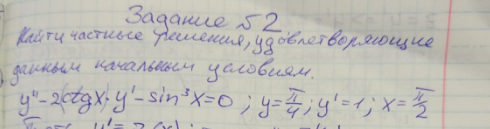 Задание №2
Найти частные решения, удовлетворяющие
данным начальным условиям.
y" - 2(ctgx)·y' - sin³x = 0 ; y = π/4 ; y' = 1 ; x = π/2